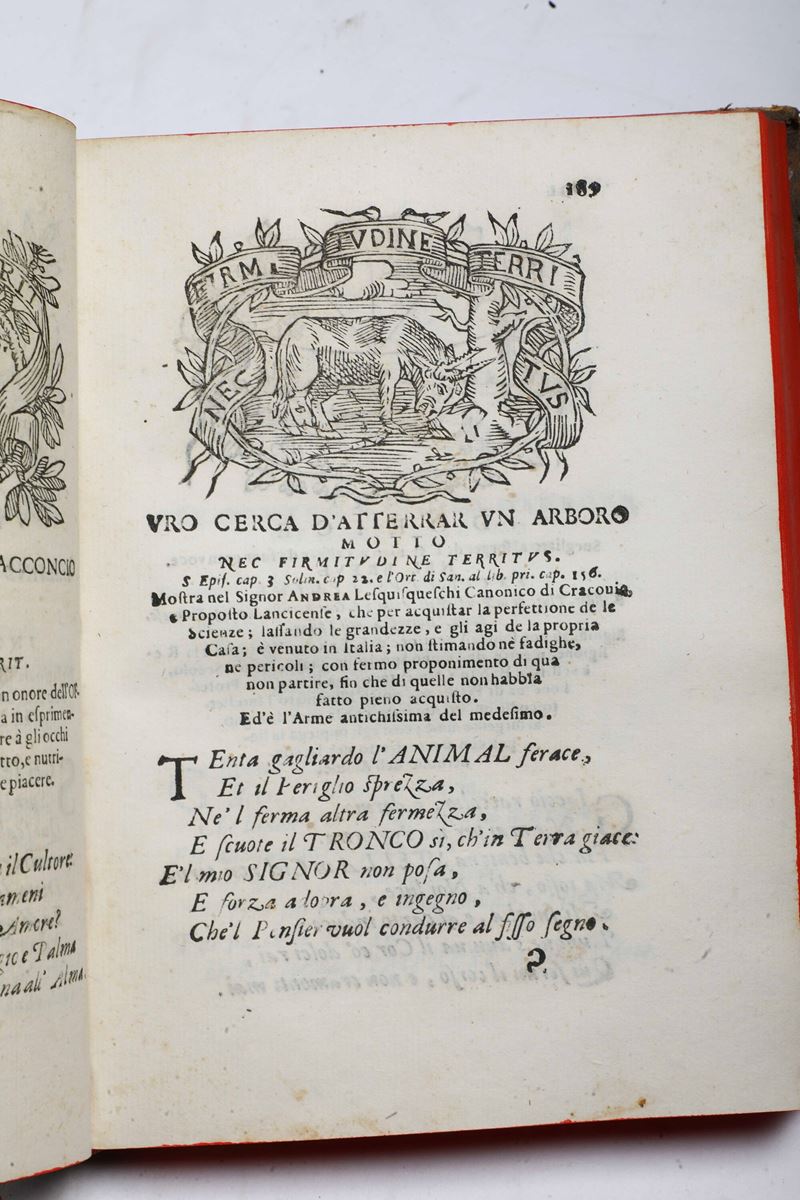 ACCONCIO
RIT.
n onore dell'Or-
a in eſprimen-
re à gli occhi
tto, e nutri-
e piacere.
il Cultore
ameni
Amore!
e Palma
na all' Alma.
189
NEC FIRMI TVDINE TERRI TVS
VRO CERCA D'ATTERRAR VN ARBORO
MOTTO
NEC FIRMITVDINE TERRITVS.
S. Epif. cap. 3 Solin. cap 22. e l'Ort. di San. al lib. pri. cap. 156.
Moſtra nel Signor ANDREA Leſquiſqueſchi Canonico di Cracouia,
e Propoſto Lancicenſe, che per acquiſtar la perfettione de le
Scienze; laſſando le grandezze, e gli agi de la propria
Caſa; è venuto in Italia; non ſtimando nè fadighe,
ne pericoli; con fermo proponimento di qua
non partire, fin che di quelle non habbia
fatto pieno acquiſto.
Ed'è l'Arme antichiſsima del medeſimo.
TEnta gagliardo l'ANIMAL ferace,
Et il Periglio ſprezza,
Ne'l ferma altra fermezza,
E ſcuote il TRONCO sì, ch'in Terra giace:
E'l mio SIGNOR non poſa,
E forza adopra, e ingegno,
Che'l Penſier vuol condurre al fiſſo ſegno.